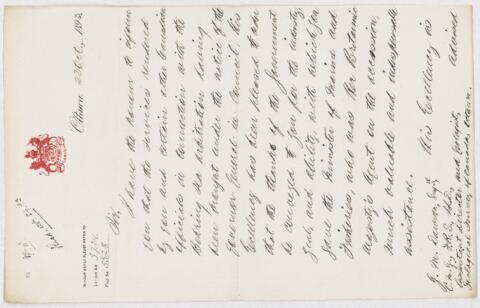 Ottawa 23 Oct. 1893
IN YOUR REPLY PLEASE REFER TO
Letter No
File No
Sir,
I have the honour to inform
you that the services rendered
by you and certain other Canadian
officials in connection with the
Behring Sea arbitration having
been brought under the notice of the
Governor General in Council, His
Excellency has been pleased to order
that the thanks of the Government
be conveyed to you for the industry,
zeal, and ability with which you
gave the Minister of Marine and
Fisheries, who was Her Britannic
Majesty's Agent on the occasion,
much valuable and indispensable
assistance.
His Excellency is
advised
G. M. Dawson, Esq.,
Assistant director and Geologist,
Geological Survey of Canada, Ottawa.